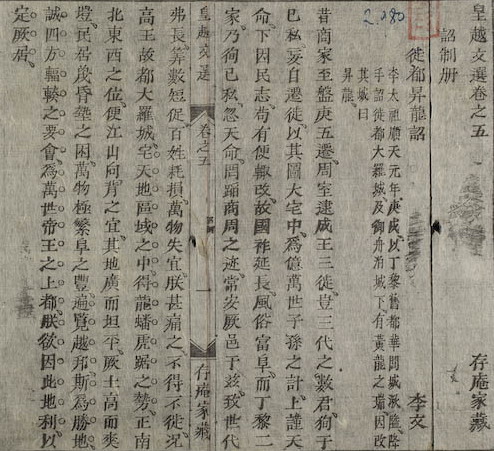 2280
皇越文選卷之五
詔制册 存庵家藏
徙都昇龍詔 李文
李太祖順天元年庚戌以丁黎舊都華閭城湫隘降
手詔徙都大羅城及御舟泊城下有黃龍之瑞因改
其城曰
昇龍
昔商家至盤庚五遷周室逮成王三徙豈三代之數君徇于
已私妄自遷徙以其圖大宅中爲億萬世子孫之計上謹天
命下因民志苟有便輒改故國祚延長風俗富阜而丁黎二
家乃徇已私忽天命罔蹈商周之迹常安厥邑于茲致世代
皇越文選 卷之五 一 存庵家藏
弗長筭數短促百姓耗損萬物失宜朕甚痛之不得不徙况
高王故都大羅城宅天地區域之中得龍蟠虎踞之勢正南
北東西之位便江山向背之宜其地廣而坦平厥土高而爽
塏民居蔑昏墊之困萬物極繁阜之豐遍覽越邦斯爲勝地
誠四方輻輳之要會爲萬世帝王之上都朕欲因此地利以
定厥居